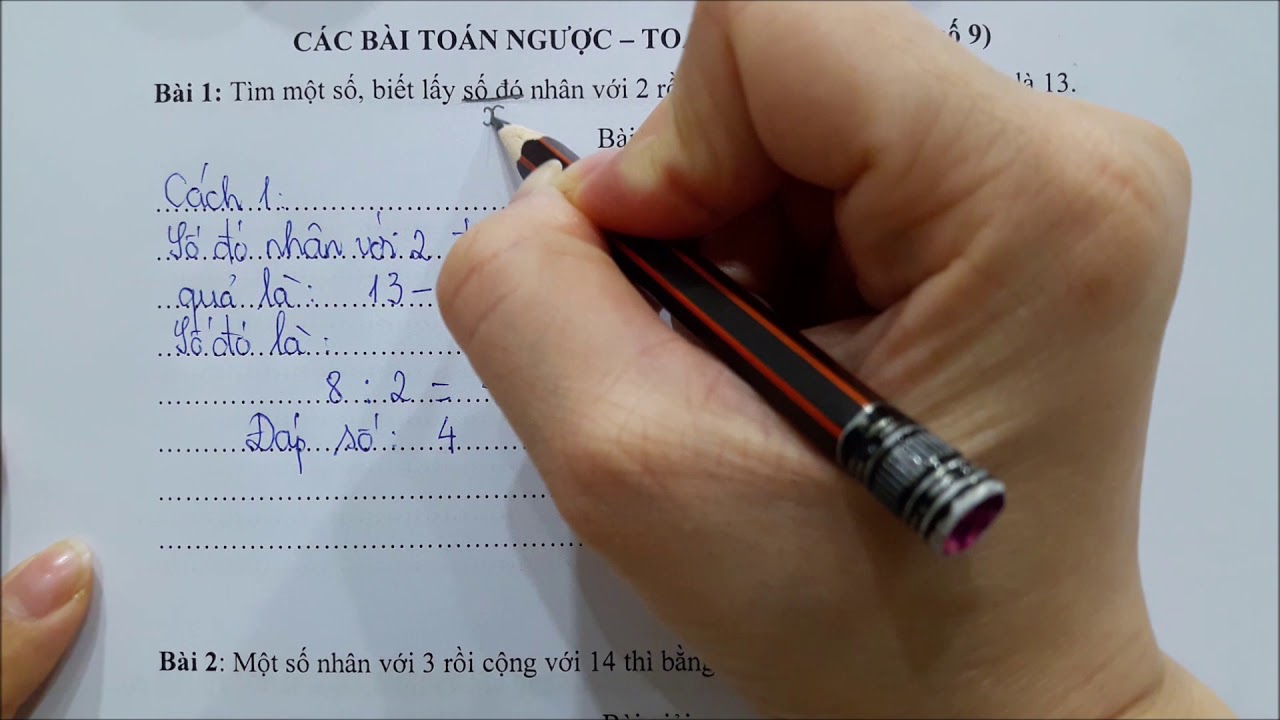 CÁC BÀI TOÁN NGƯỢC – TOÁ ố 9)
Bài 1: Tìm một số, biết lấy số đó nhân với 2 rồ là 13.
x
Bài
Cách 1:
Số đó nhân với 2
quả là: 13 –
Số đó là:
8 : 2 =
Đáp số: 4
Bài 2: Một số nhân với 3 rồi cộng với 14 thì bằng
Bài giải